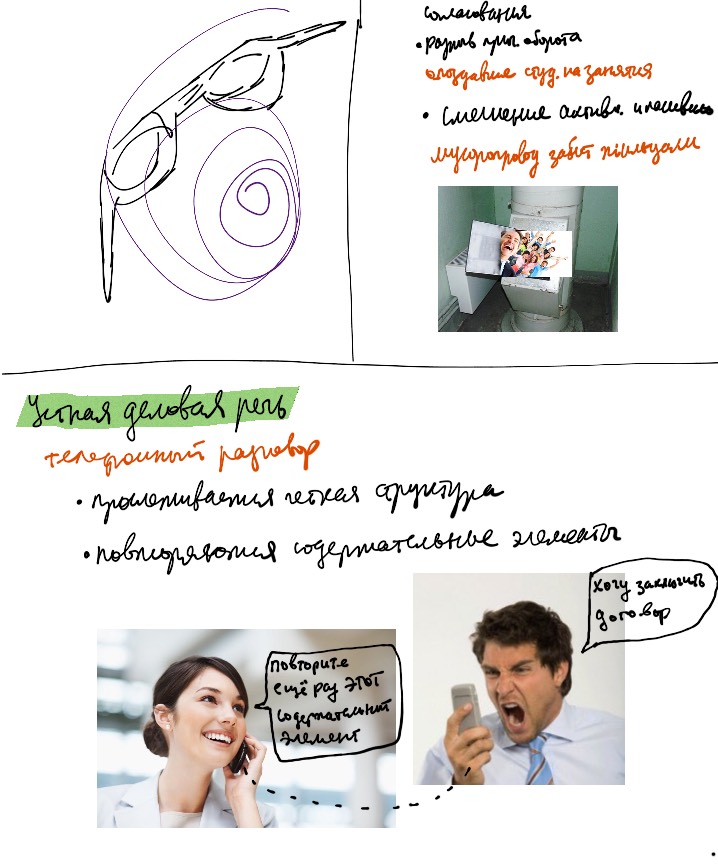 согласования
• разрыв прич. оборота
опоздавшие студ. на занятия
• смешение активн. и пассивн.
мусоропровод забит жильцами
Устная деловая речь
телефонный разговор
• прослеживается четкая структура
• повторяются содержательные элементы
Хочу заключить
договор
повторите
ещё раз этот
содержательный
элемент